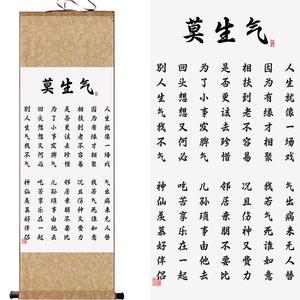 莫生气
人生就像一场戏
因为有缘才相聚
相扶到老不容易
是否更该去珍惜
为了小事发脾气
回头想想又何必
别人生气我不气
气出病来无人替
我若气死谁如意
况且伤神又费力
邻居亲朋不要比
儿孙琐事由他去
吃苦享乐在一起
神仙羡慕好伴侣
莫生气
人生就像一场戏
因为有缘才相聚
相扶到老不容易
是否更该去珍惜
为了小事发脾气
回头想想又何必
别人生气我不气
气出病来无人替
我若气死谁如意
况且伤神又费力
邻居亲朋不要比
儿孙琐事由他去
吃苦享乐在一起
神仙羡慕好伴侣